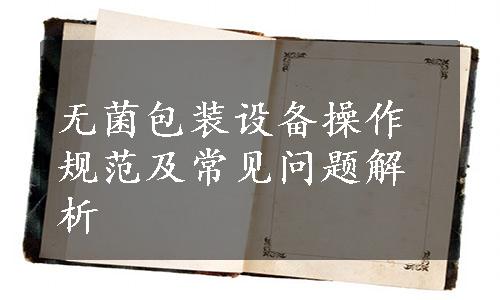 无菌包装设备操作
规范及常见问题解
析